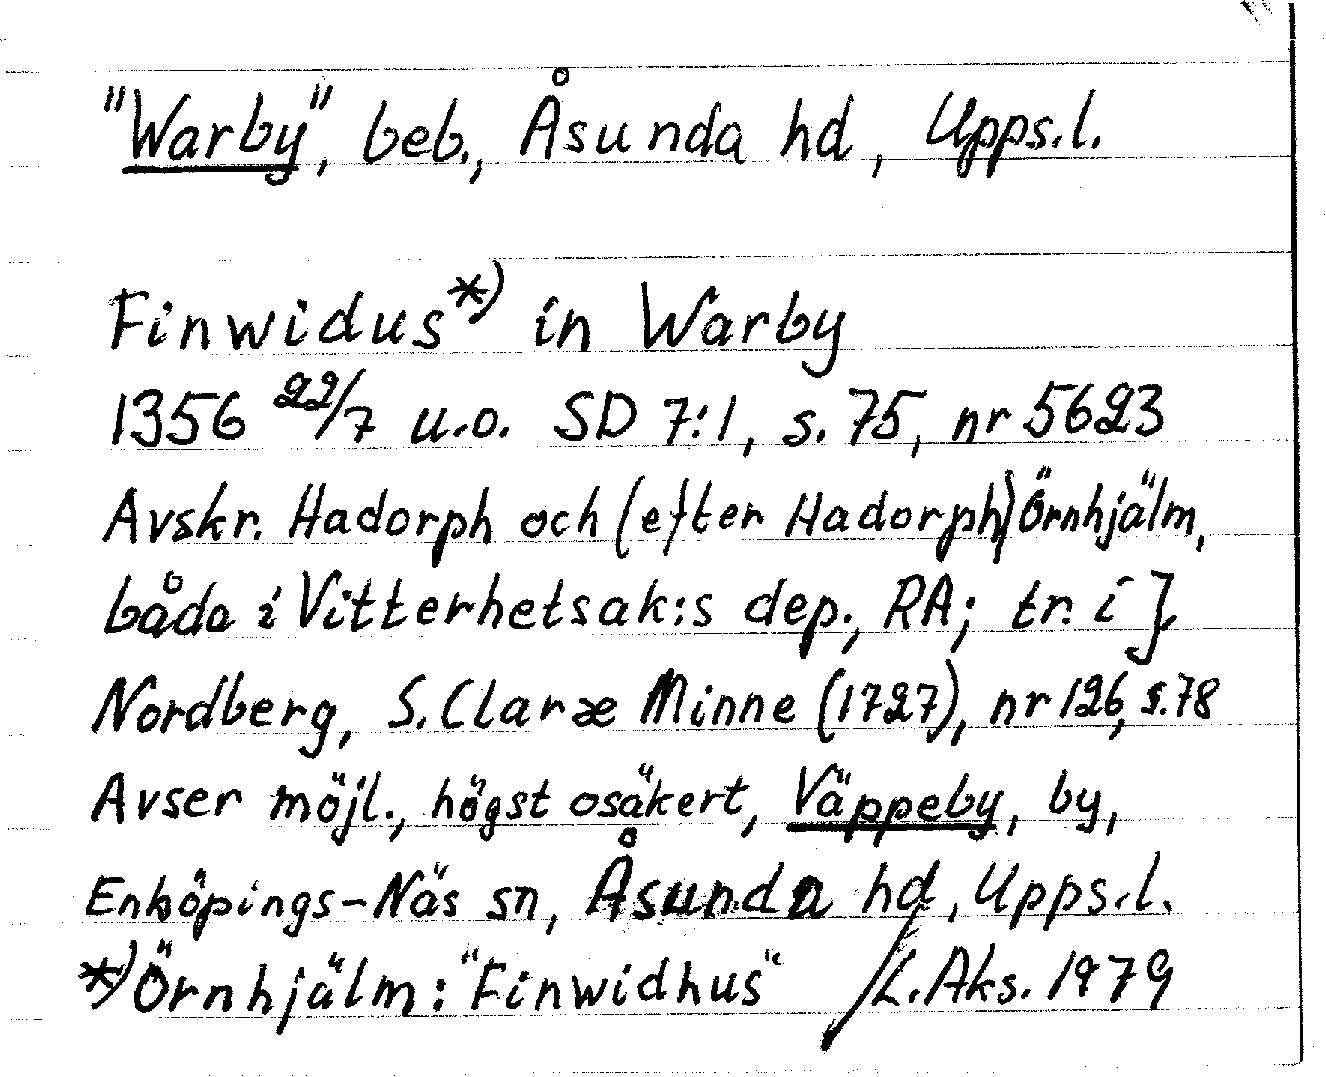 "Warby", beb., Åsunda hd, Upps.l.
Finwidus*) in Warby
1356 22/7 u.o. SD 7:1, s. 75, nr 5623
Avskr. Hadorph och (efter Hadorph) Örnhjälm,
båda i Vitterhetsak:s dep., RA; tr. i J.
Nordberg, S. Claræ Minne (1727), nr 126, s. 78
Avser möjl., högst osäkert, Väppeby, by,
Enköpings-Näs sn, Åsunda hd, Upps.l.
*) Örnhjälm: "Finwidhus" /L. Aks. 1979